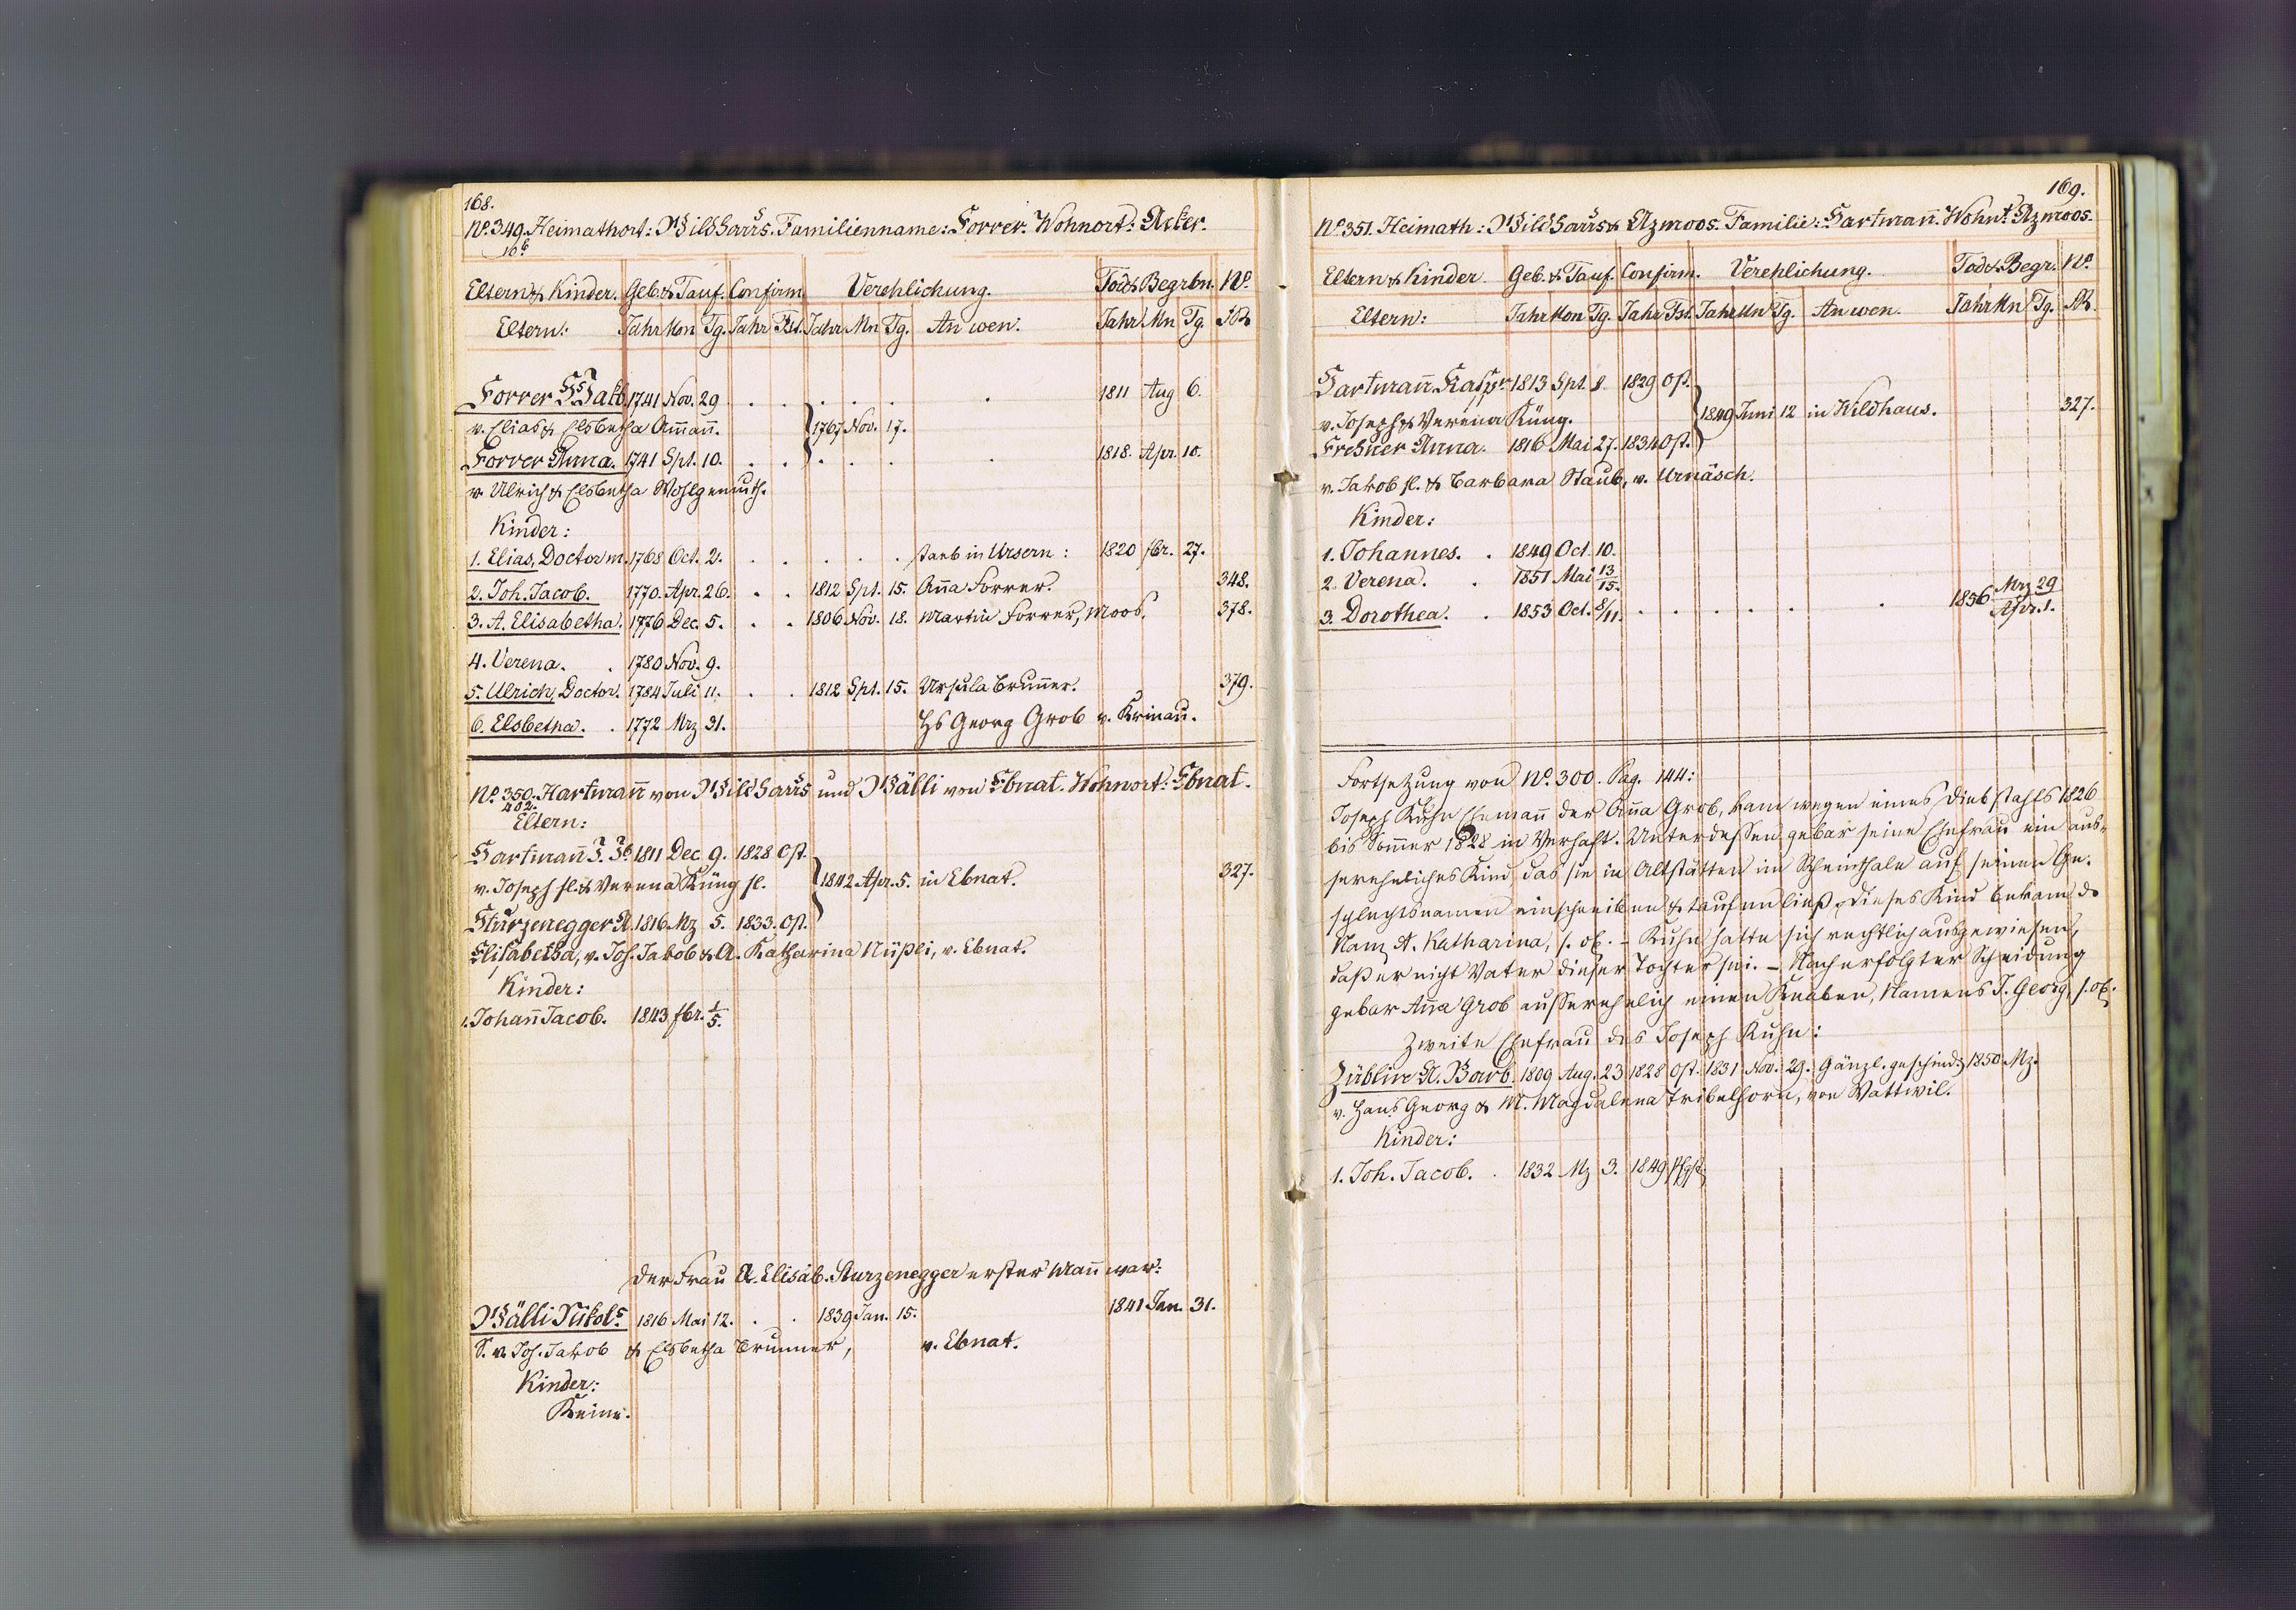 168.
No. 349. Heimathort: Wildhaus. Familienname: Forrer. Wohnort: Acker.
Eltern & Kinder. Geb. & Tauf. Confirm. Verehlichung. Tod & Begrbn. No.
Eltern: Jahr Mon Tg. Jahr Fst. Jahr Mn Tg. An wen: Jahr Mn Tg.
Forrer Hs Jakb. 1741 Nov. 29 1811 Aug 6.
v. Elias & Elsbetha Am̄an̄. 1767 Nov. 17.
Forrer Anna. 1741 Spt. 10. 1818. Apr. 10.
v. Ulrich & Elsbetha Wohlgemuth.
Kinder:
1. Elias, Doctor m. 1768 Oct. 2. starb in Ursern: 1820 fbr. 27.
2. Joh. Jacob. 1770. Apr. 26. 1812 Spt. 15. An̄a Forrer. 348.
3. A. Elisabetha. 1776 Dec. 5. 1806 Nov. 18. Martin Forrer, Moos. 378.
4. Verena. 1780 Nov. 9.
5. Ulrich, Doctor. 1784 Juli 11. 1812 Spt. 15. Ursula Brun̄er. 379.
6. Elsbetha. 1772 Mrz 31. Hs Georg Grob v. Krinau.
No. 350. Hartman̄ von Wildhaus und Wälli von Ebnat. Wohnort: Ebnat.
402.
Eltern:
Hartman̄ J. Jb. 1811 Dec. 9. 1828 Ost.
v. Joseph sl. & Verena Küng sl. 1842 Apr. 5. in Ebnat. 327.
Sturzenegger A. 1816 Mz 5. 1833. Ost.
Elisabetha, v. Joh. Jakob & A. Katharina Nüßli, v. Ebnat.
Kinder:
1. Johan̄ Jacob. 1843 fbr. 1/5.
Der Frau A. Elisab. Sturzenegger erster Man̄ war:
Wälli Nikols. 1816 Mai 12. 1839 Jan. 15. 1841 Jan. 31.
S. v. Joh. Jakob & Elsbetha Brunner, v. Ebnat.
Kinder:
Keine.
169.
No. 351. Heimath: Wildhaus & Azmoos. Familie: Hartman̄. Wohnt. Azmoos.
Eltern & Kinder Geb. & Tauf. Confirm. Verehlichung. Tod & Begr. No.
Eltern: Jahr Mn Tg. Jahr Fst. Jahr Mn Tg. An wen. Jahr Mn Tg.
Hartman̄ Kaspr. 1813 Spt. 8 1829 Ost.
v. Joseph & Verena Küng. 1849 Juni 12 in Wildhaus. 327.
Frehner Anna. 1816 Mai 27. 1834 Ost.
v. Jakob sl. & Barbara Staub, v. Urnäsch.
Kinder:
1. Johannes. 1849 Oct. 10.
2. Verena. 1851 Mai 13/15.
3. Dorothea. 1853 Oct. 8/11. 1856 Mrz 29 / Apr. 1.
Fortsetzung von No. 300. Pag. 144:
Joseph Kuhn Eheman̄ der An̄a Grob, kam wegen eines Diebstahls 1826
bis Som̄er 1828 in Verhaft. Unterdessen gebar seine Ehefrau ein aus-
serehelichesKind, das sie in Altstätten im Rheinthale auf seinen Ge-
schlechtsnamen einschreiben & taufen ließ. Dieses Kind bekam d.
Nam. A. Katharina, s. ob. – Kuhn hatte sich rechtlich ausgewiesen,
daß er nicht Vater dieser Tochter sei. – Nach erfolgter Scheidung
gebar An̄a Grob ausserehelich einen Knaben, Namens J. Georg, s. ob.
Zweite Ehefrau des Joseph Kuhn:
Züblin A. Barb. 1809 Aug. 23 1828 Ost. 1831 Nov. 29. Gänzl. geschied. 1850 Mz.
v. Hans Georg & M. Magdalena Tribelhorn, von Wattwil.
Kinder:
1. Joh. Jacob. 1832 Mz 3. 1849 Pfgst.